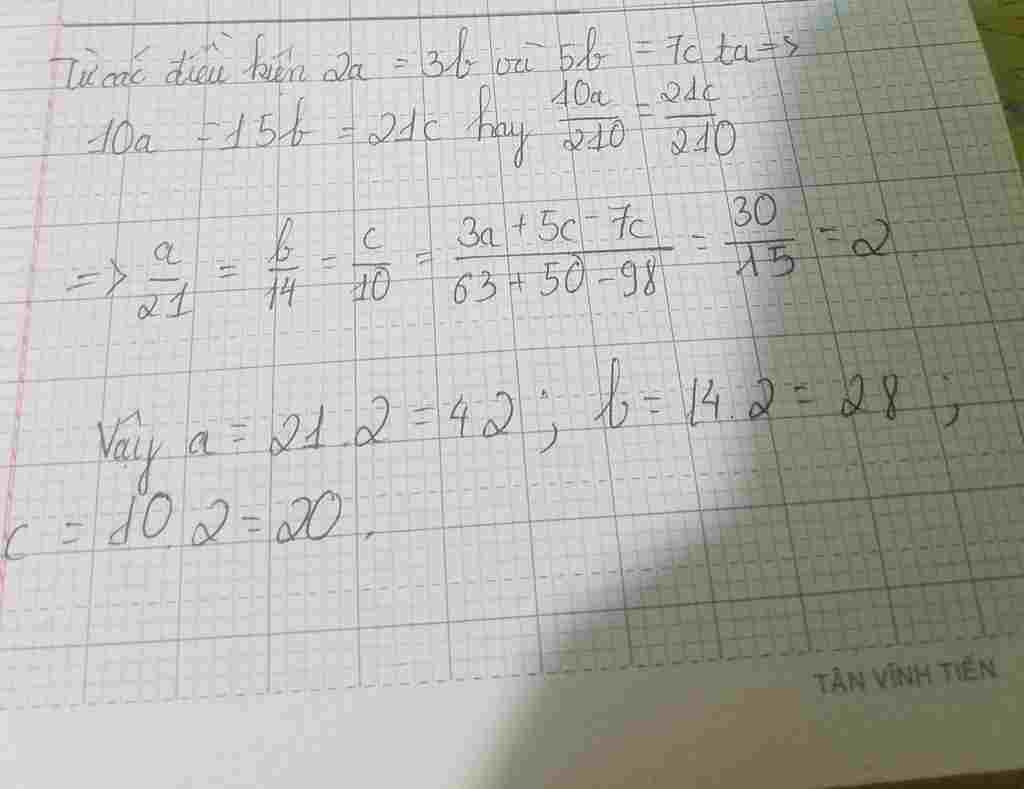 Từ các điều kiện 2a = 3b và 5b = 7c ta =>
10a = 15b = 21c hay 10a/210 = 21c/210
=> a/21 = b/14 = c/10 = (3a + 5c - 7c)/(63 + 50 - 98) = 30/15 = 2
Vậy a = 21.2 = 42 ; b = 14.2 = 28 ;
c = 10.2 = 20.
TÂN VĨNH TIẾN